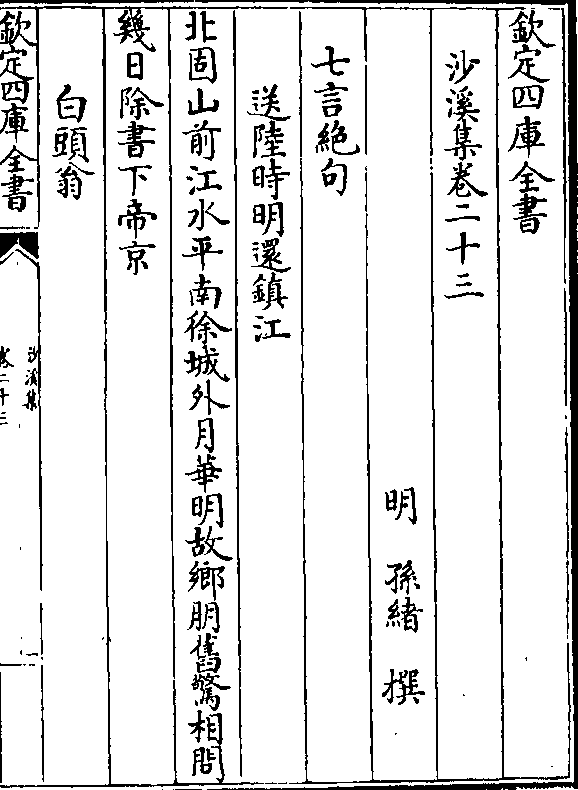 欽定四庫全書
沙溪集卷二十三
明　孫緒　撰
七言絶句
送陸時明還鎮江
北固山前江水平南徐城外月華明故鄉朋舊驚相問
幾日除書下帝京
白頭翁
欽定四庫全書
沙溪集
卷二十三
一